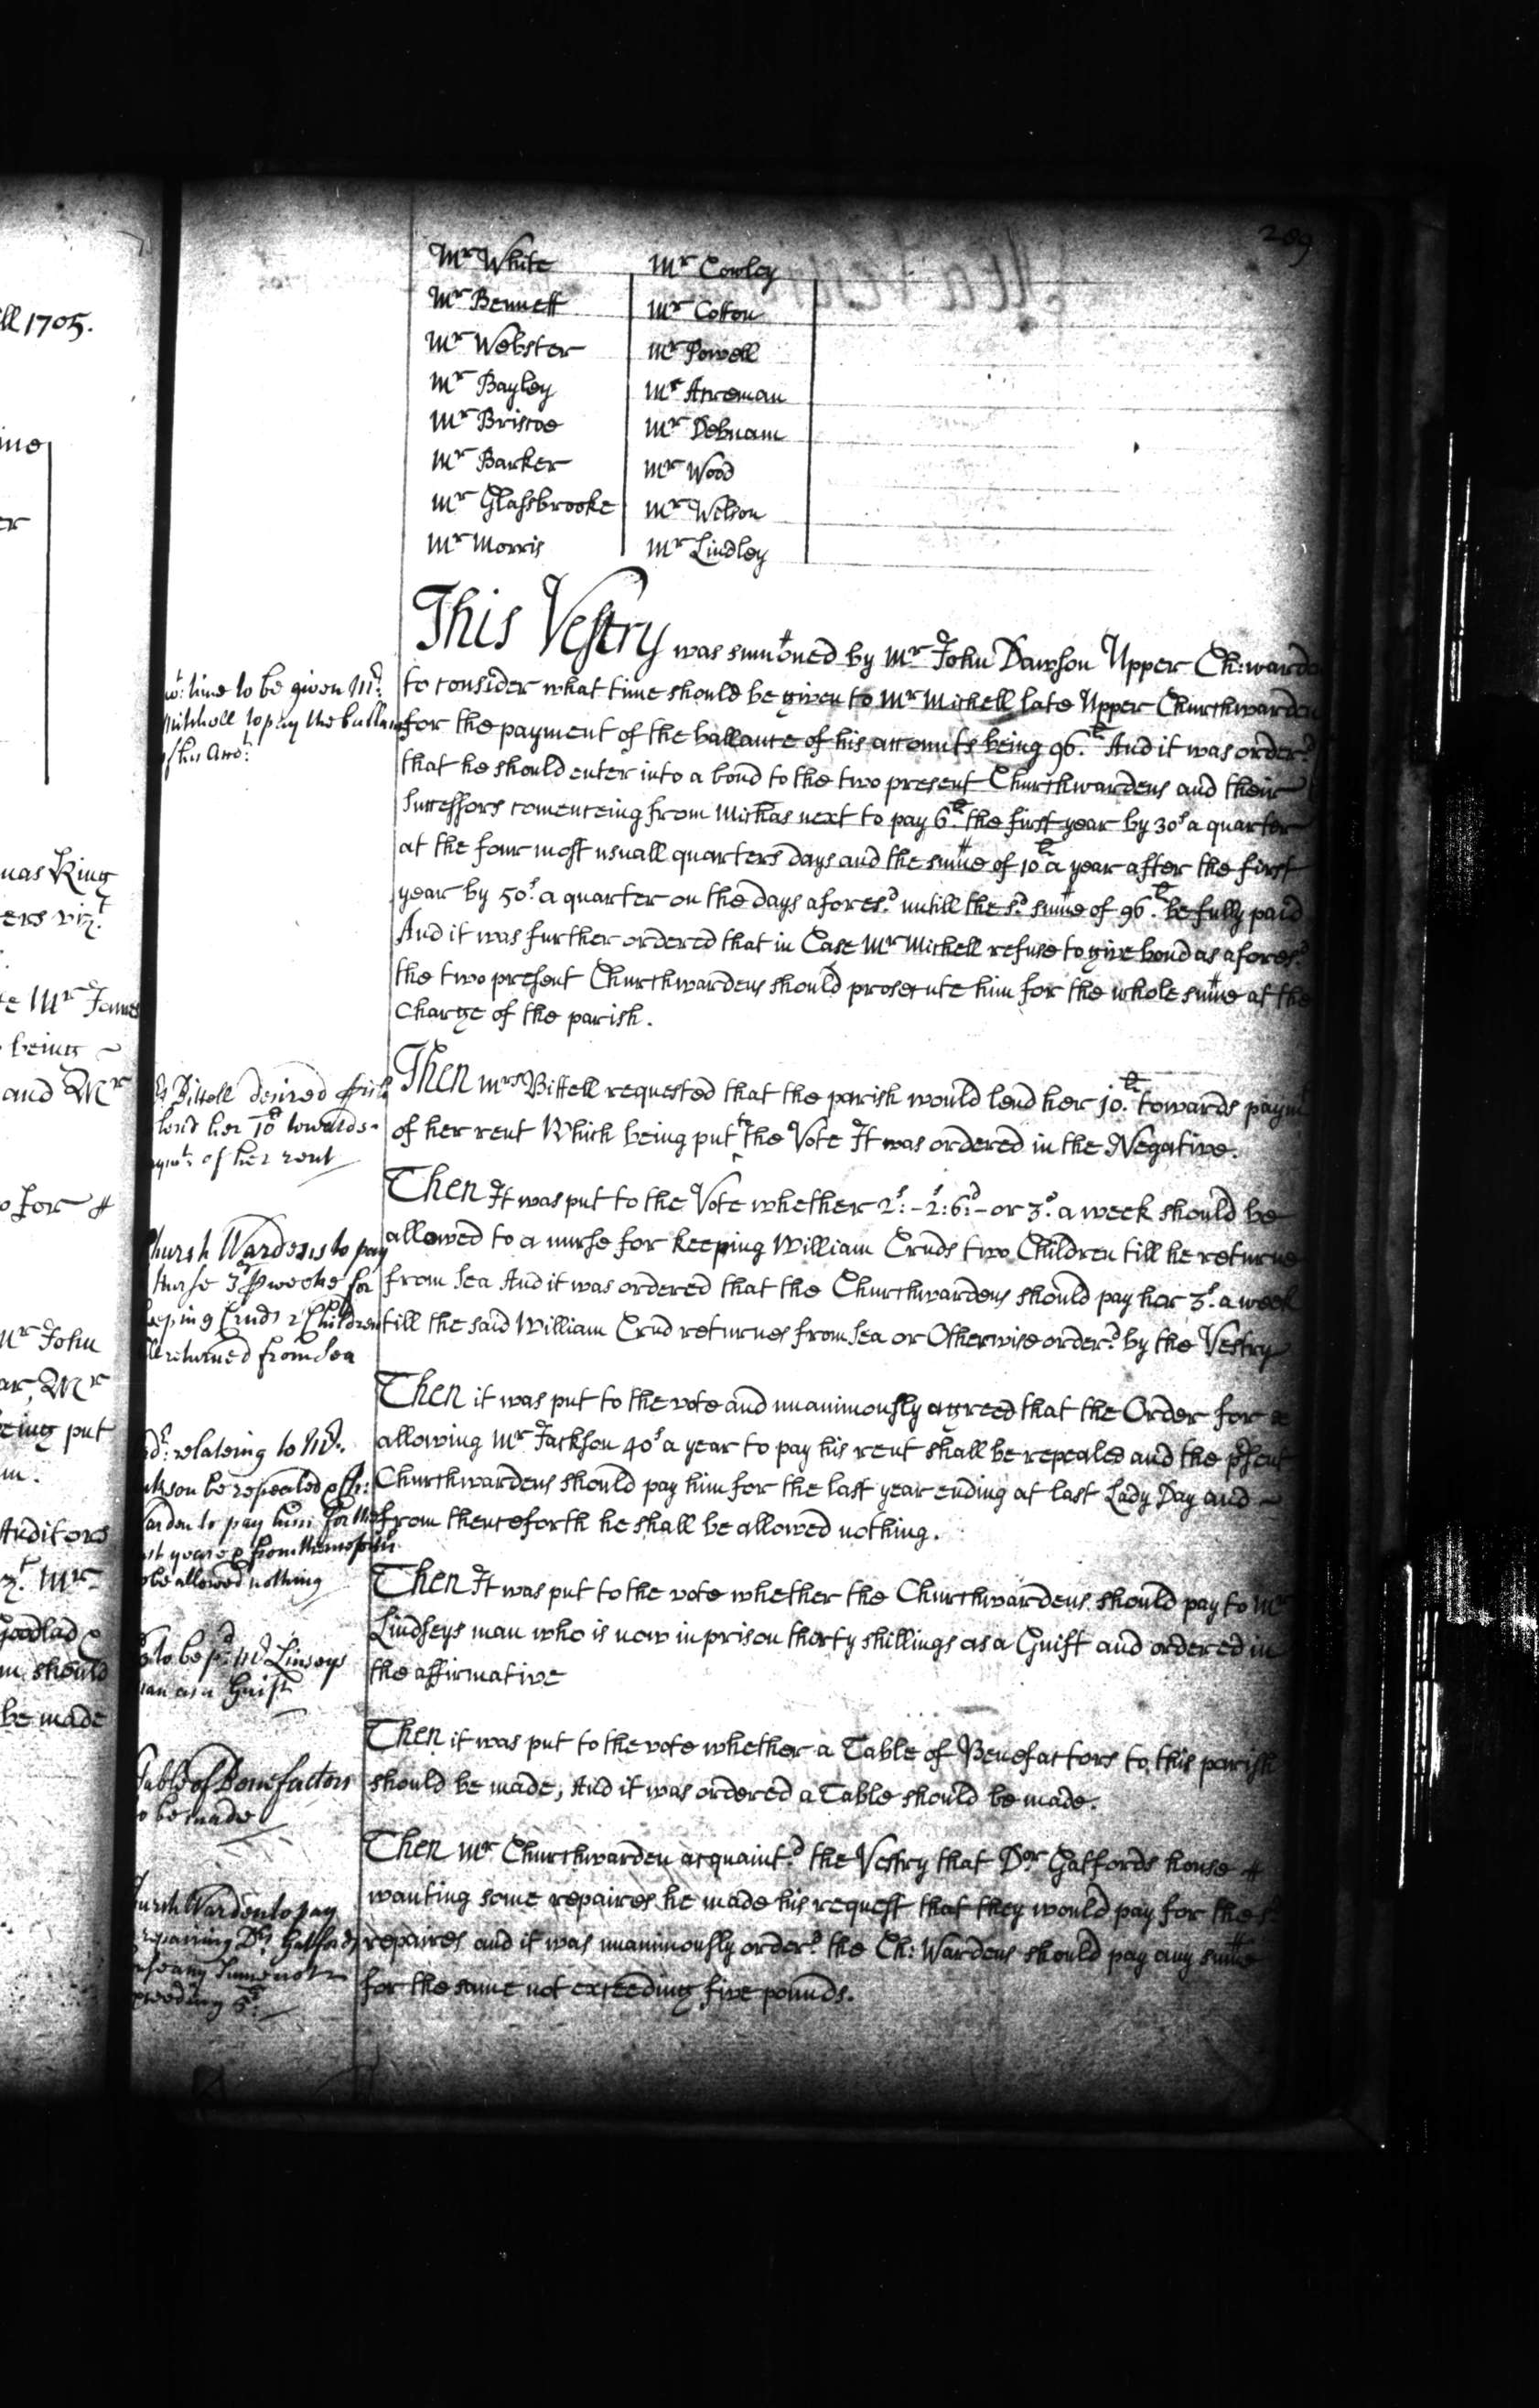 289
Mr White
Mr Bennett
Mr Webster
Mr Bayley
Mr Briscoe
Mr Barker
Mr Glassbrooke
Mr Morris
Mr Cowley
Mr Cotton
Mr Powell
Mr Debnam
Mr Wood
Mr Wilson
Mr Lindley
This Vestry was summoned by Mr John Dawson Upper Ch:warde
to consider what time should be given to Mr Michell late Upper Churchwarden
for the payment of the ballance of his accounts being 96.li And it was order.d
that he should enter into a bond to the two present Churchwardens and their
Successors comenceing from Michas next to pay 6.li the first year by 30s a quarter
at the four most usuall quarters days and the sume of 10li a year after the first
year by 50s. a quarter on the days afores.d untill the s.d sume of 96.li be fully paid
And it was further ordered that in Case Mr Michell refuse to give bond as afores.d
the two present Churchwardens should prosecute him for the whole sume at the
Charge of the parish.
Then mrs Bittell requested that the parish would lend her 10.li towards paymt
of her rent Which being put to the Vote It was ordered in the Negative.
Then It was put to the Vote whether 2s:-2s:6d:- or 3s. a week should be
allowed to a nurse for keeping William Cruds two Children till he returne
from Sea And it was ordered that the Churchwardens should pay her 3s. a week
till the said William Crud returnes from Sea or Otherwise order.d by the Vestry
Then it was put to the vote and unanimously agreed that the Order for
allowing Mr Jackson 40s a year to pay his rent shall be repealed and the psent
Churchwardens should pay him for the last year ending at last Lady Day and ~
from thenceforth he shall be allowed nothing.
Then It was put to the vote whether the Churchwardens should pay to Mr
Lindseys man who is now in prison thirty shillings as a Guift and ordered in
the affirmative
Then it was put to the vote whether a Table of Benefactors to this parish
should be made, And it was ordered a Table should be made.
Then Mr Churchwarden acquaint.d the Vestry that Dor Gattfords house
wanting some repaires he made his request that they would pay for the s.d
repaires and it was unanimously order.d the Ch: Wardens should pay any sume
for the same not exceeding five pounds.
time to be given Mr.
Mitchell to pay the ballan
of his Acco.t
Bittell desired
lend her 10li towards
of her rent
Church Wardens to pay
Nurse 3s P weeke for
Cruds 2 Children
returned from Sea
relateing to Mr.
be repealed
to pay him for the
be allowed nothing
to be p.d Mr Linseys
man as a Guift
Table of Benefactors
to be made
Church Warden to pay
repairing Drs Gattfords
any Sume not
exceeding 5li.
ll 1705.
King
Mr James
being ~
and Mr
for
Mr John
Mr
being put
Auditors
Mr
Goodlad
should
be made